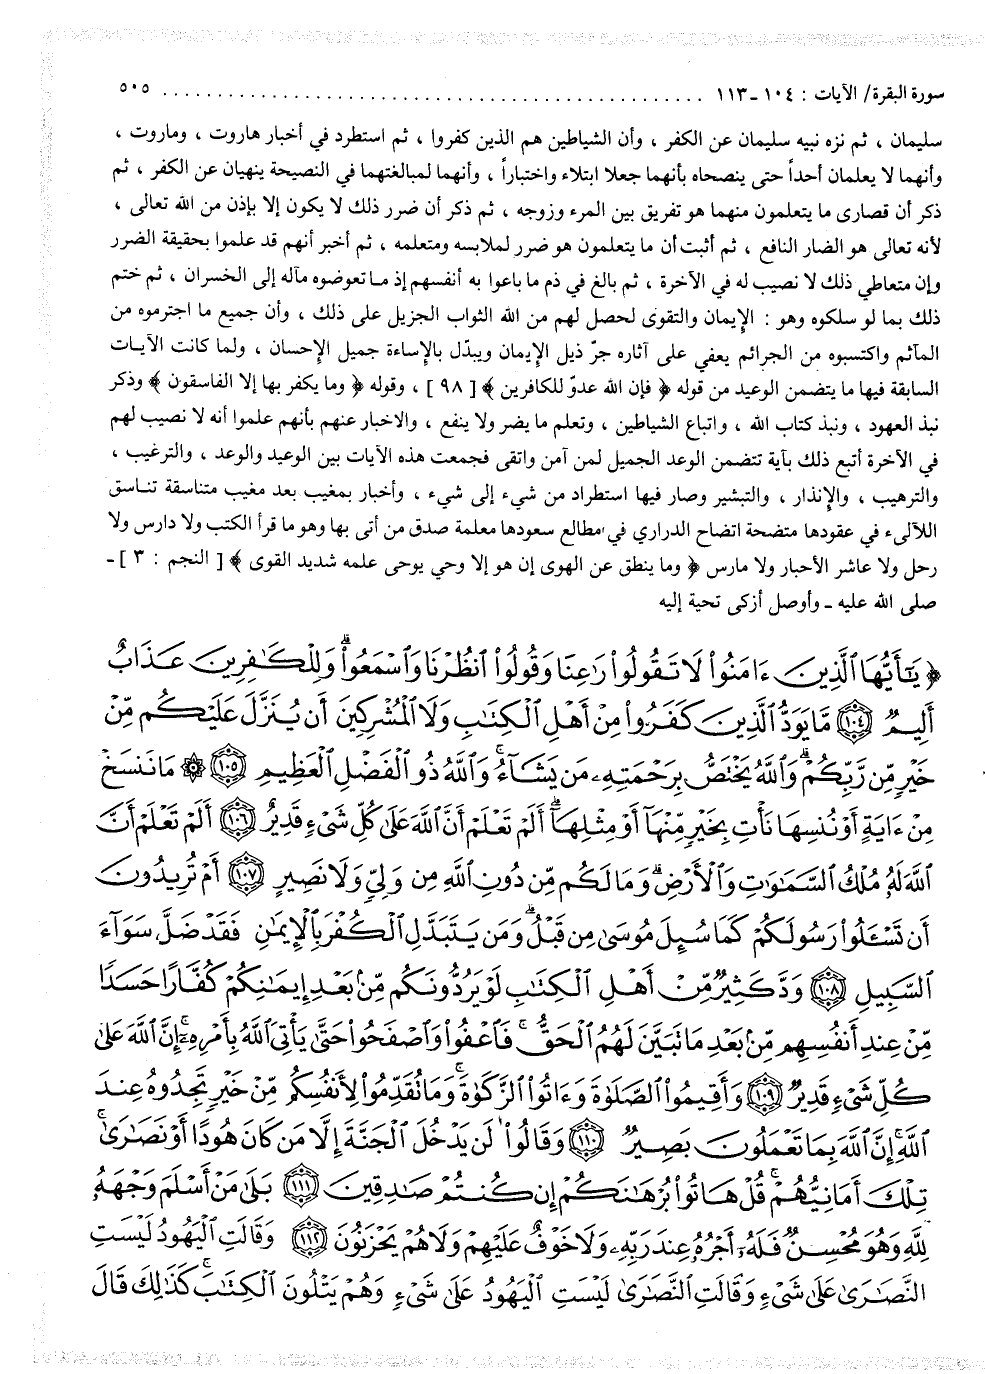 سورة البقرة/ الآيات : ١٠٤ -١١٣ ........................................ ٥٠٥
سليمان ، ثم نزه نبيه سليمان عن الكفر ، وأن الشياطين هم الذين كفروا ، ثم استطرد في أخبار هاروت ، وماروت ،
وأنهما لا يعلمان أحداً حتى ينصحاه بأنهما جعلا ابتلاء واختباراً ، وأنهما لمبالغتهما في النصيحة ينهيان عن الكفر ، ثم
ذكر أن قصارى ما يتعلمون منهما هو تفريق بين المرء وزوجه ، ثم ذكر أن ضرر ذلك لا يكون إلا بإذن من الله تعالى ،
لأنه تعالى هو الضار النافع ، ثم أثبت أن ما يتعلمون هو ضرر لملابسه ومتعلمه ، ثم أخبر أنهم قد علموا بحقيقة الضرر
وإن متعاطي ذلك لا نصيب له في الآخرة ، ثم بالغ في ذم ما باعوا به أنفسهم إذ ما تعوضوه مآله إلى الخسران ، ثم ختم
ذلك بما لو سلكوه وهو : الإيمان والتقوى لحصل لهم من الله الثواب الجزيل على ذلك ، وأن جميع ما اجترموه من
المآثم واكتسبوه من الجرائم يعفي على آثاره جرّ ذيل الإيمان ويبدّل بالإساءة جميل الإحسان ، ولما كانت الآيات
السابقة فيها ما يتضمن الوعيد من قوله ﴿ فإن الله عدوّ للكافرين ﴾ [ ٩٨ ] ، وقوله ﴿ وما يكفر بها إلا الفاسقون ﴾ وذكر
نبذ العهود ، ونبذ كتاب الله ، واتباع الشياطين ، وتعلم ما يضر ولا ينفع ، والاخبار عنهم بأنهم علموا أنه لا نصيب لهم
في الآخرة أتبع ذلك بآية تتضمن الوعد الجميل لمن آمن واتقى فجمعت هذه الآيات بين الوعيد والوعد ، والترغيب ،
والترهيب ، والإنذار ، والتبشير وصار فيها استطراد من شيء إلى شيء ، وأخبار بمغيب بعد مغيب متناسقة تناسق
اللآلىء في عقودها متضحة اتضاح الدراري في مطالع سعودها معلمة صدق من أتى بها وهو ما قرأ الكتب ولا دارس ولا
رحل ولا عاشر الأحبار ولا مارس ﴿ وما ينطق عن الهوى إن هو إلا وحي يوحى علمه شديد القوى ﴾ [ النجم : ٣ ] ـ
صلى الله عليه ـ وأوصل أزكى تحية إليه
﴿ يَٰٓأَيُّهَا ٱلَّذِينَ ءَامَنُوا۟ لَا تَقُولُوا۟ رَٰعِنَا وَقُولُوا۟ ٱنظُرْنَا وَٱسْمَعُوا۟ۗ وَلِلْكَٰفِرِينَ عَذَابٌ
أَلِيمٌ ١٠٤ مَّا يَوَدُّ ٱلَّذِينَ كَفَرُوا۟ مِنْ أَهْلِ ٱلْكِتَٰبِ وَلَا ٱلْمُشْرِكِينَ أَن يُنَزَّلَ عَلَيْكُم مِّنْ
خَيْرٍ مِّن رَّبِّكُمْۗ وَٱللَّهُ يَخْتَصُّ بِرَحْمَتِهِۦ مَن يَشَآءُۚ وَٱللَّهُ ذُو ٱلْفَضْلِ ٱلْعَظِيمِ ١٠٥ ۞ مَا نَنسَخْ
مِنْ ءَايَةٍ أَوْ نُنسِهَا نَأْتِ بِخَيْرٍ مِّنْهَآ أَوْ مِثْلِهَآۗ أَلَمْ تَعْلَمْ أَنَّ ٱللَّهَ عَلَىٰ كُلِّ شَىْءٍ قَدِيرٌ ١٠٦ أَلَمْ تَعْلَمْ أَنَّ
ٱللَّهَ لَهُۥ مُلْكُ ٱلسَّمَٰوَٰتِ وَٱلْأَرْضِۗ وَمَا لَكُم مِّن دُونِ ٱللَّهِ مِن وَلِىٍّ وَلَا نَصِيرٍ ١٠٧ أَمْ تُرِيدُونَ
أَن تَسْـَٔلُوا۟ رَسُولَكُمْ كَمَا سُئِلَ مُوسَىٰ مِن قَبْلُۗ وَمَن يَتَبَدَّلِ ٱلْكُفْرَ بِٱلْإِيمَٰنِ فَقَدْ ضَلَّ سَوَآءَ
ٱلسَّبِيلِ ١٠٨ وَدَّ كَثِيرٌ مِّنْ أَهْلِ ٱلْكِتَٰبِ لَوْ يَرُدُّونَكُم مِّنۢ بَعْدِ إِيمَٰنِكُمْ كُفَّارًا حَسَدًا
مِّنْ عِندِ أَنفُسِهِم مِّنۢ بَعْدِ مَا تَبَيَّنَ لَهُمُ ٱلْحَقُّۖ فَٱعْفُوا۟ وَٱصْفَحُوا۟ حَتَّىٰ يَأْتِىَ ٱللَّهُ بِأَمْرِهِۦٓۗ إِنَّ ٱللَّهَ عَلَىٰ
كُلِّ شَىْءٍ قَدِيرٌ ١٠٩ وَأَقِيمُوا۟ ٱلصَّلَوٰةَ وَءَاتُوا۟ ٱلزَّكَوٰةَۚ وَمَا تُقَدِّمُوا۟ لِأَنفُسِكُم مِّنْ خَيْرٍ تَجِدُوهُ عِندَ
ٱللَّهِۗ إِنَّ ٱللَّهَ بِمَا تَعْمَلُونَ بَصِيرٌ ١١٠ وَقَالُوا۟ لَن يَدْخُلَ ٱلْجَنَّةَ إِلَّا مَن كَانَ هُودًا أَوْ نَصَٰرَىٰۗ
تِلْكَ أَمَانِيُّهُمْۗ قُلْ هَاتُوا۟ بُرْهَٰنَكُمْ إِن كُنتُمْ صَٰدِقِينَ ١١١ بَلَىٰ مَنْ أَسْلَمَ وَجْهَهُۥ
لِلَّهِ وَهُوَ مُحْسِنٌ فَلَهُۥٓ أَجْرُهُۥ عِندَ رَبِّهِۦ وَلَا خَوْفٌ عَلَيْهِمْ وَلَا هُمْ يَحْزَنُونَ ١١٢ وَقَالَتِ ٱلْيَهُودُ لَيْسَتِ
ٱلنَّصَٰرَىٰ عَلَىٰ شَىْءٍ وَقَالَتِ ٱلنَّصَٰرَىٰ لَيْسَتِ ٱلْيَهُودُ عَلَىٰ شَىْءٍ وَهُمْ يَتْلُونَ ٱلْكِتَٰبَۗ كَذَٰلِكَ قَالَ